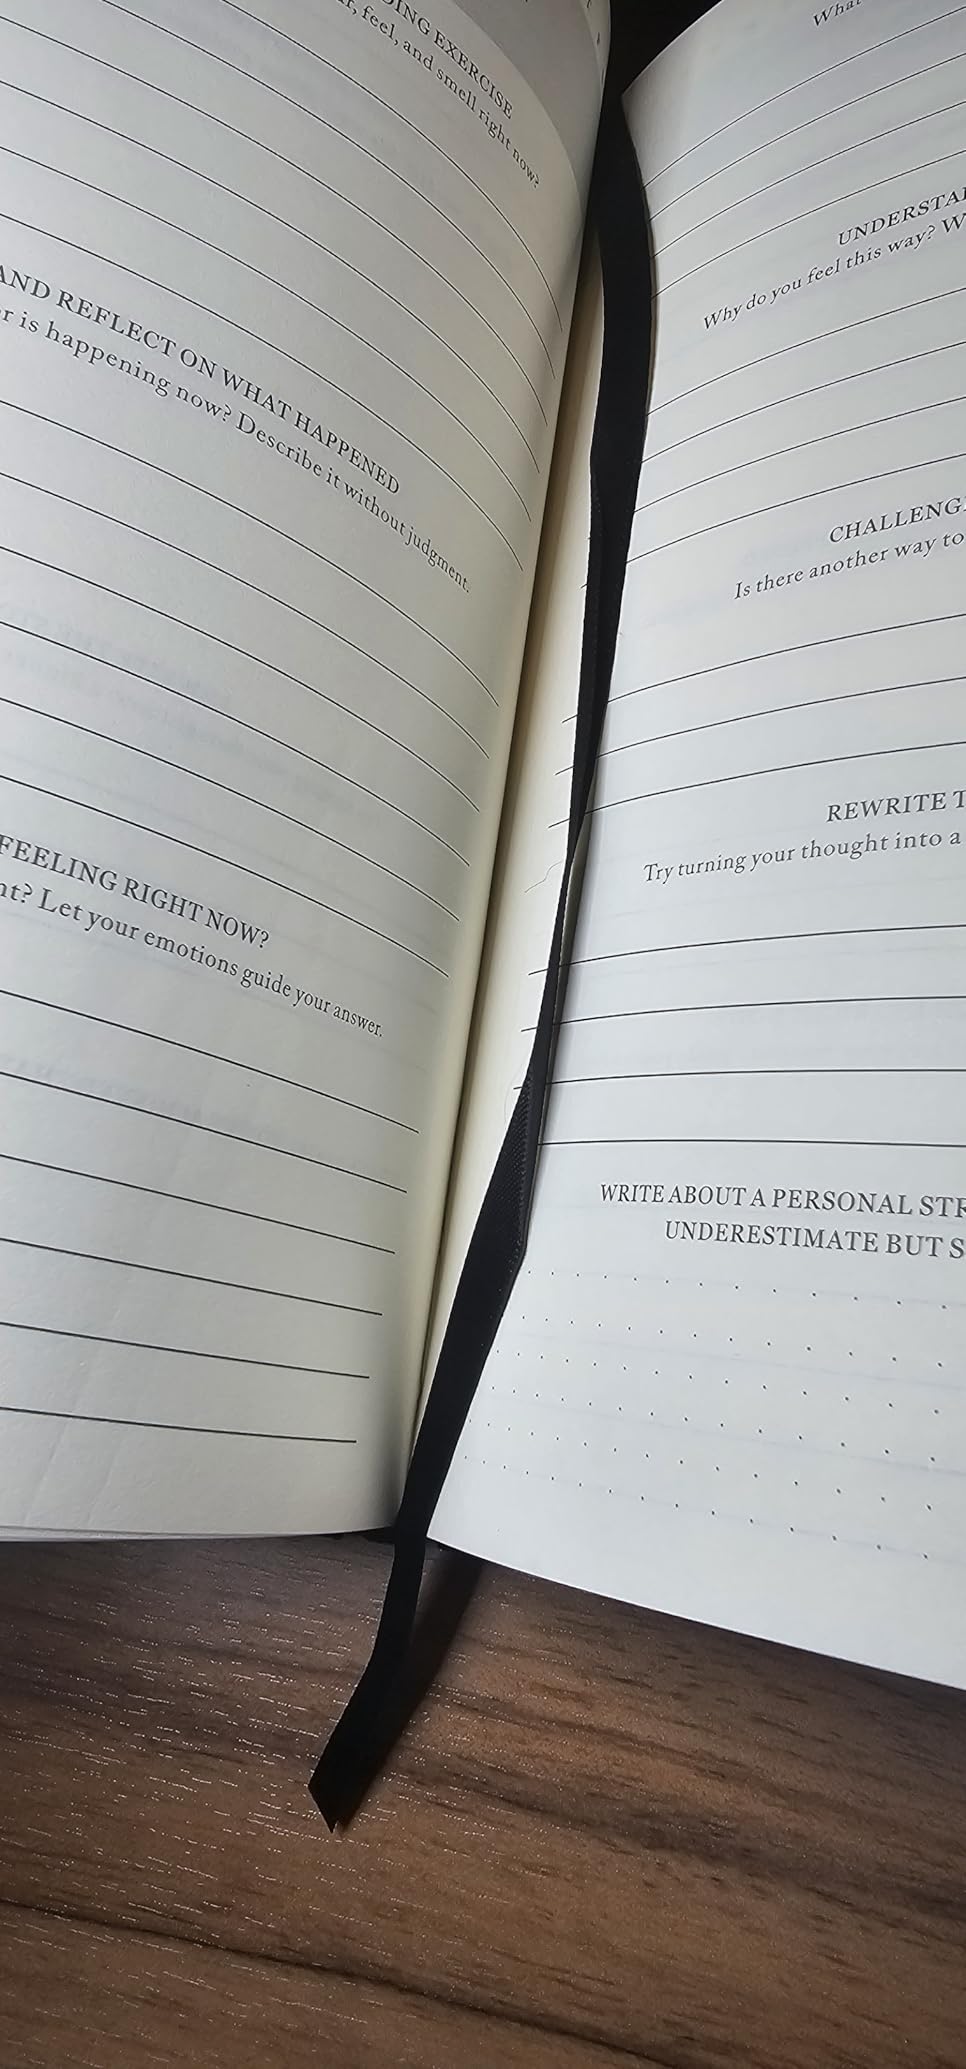 EXERCISE
feel, and smell right now?
AND REFLECT ON WHAT HAPPENED
is happening now? Describe it without judgment.
FEELING RIGHT NOW?
Let your emotions guide your answer.
What
Why do you feel this way?
Is there another way to
REWRITE
Try turning your thought into a
WRITE ABOUT A PERSONAL
UNDERESTIMATE BUT